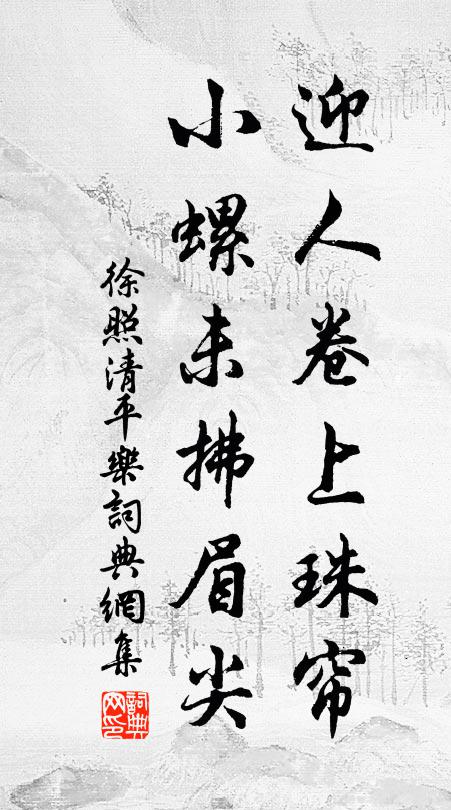 迎人卷上珠帘
小螺未拂眉尖
徐照清平樂詞典網集
詞典网印